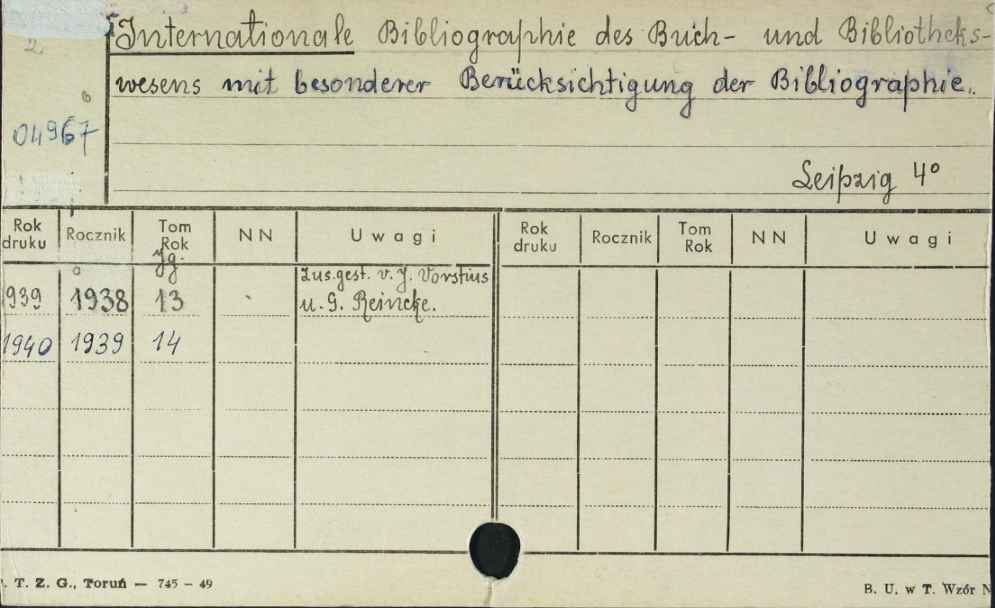 Internationale Bibliographie des Buch- und Bibliotheks-
wesens mit besonderer Berücksichtigung der Bibliographie.
04967
Leipzig 4°
Rok druku Rocznik Tom Rok Jg. NN Uwagi Rok druku Rocznik Tom Rok NN Uwagi
Zus.gest. v. J. Vorstius
939 1938 13 u. G. Reincke.
1940 1939 14
. T. Z. G., Toruń — 745 - 49
B. U. w T. Wzór N